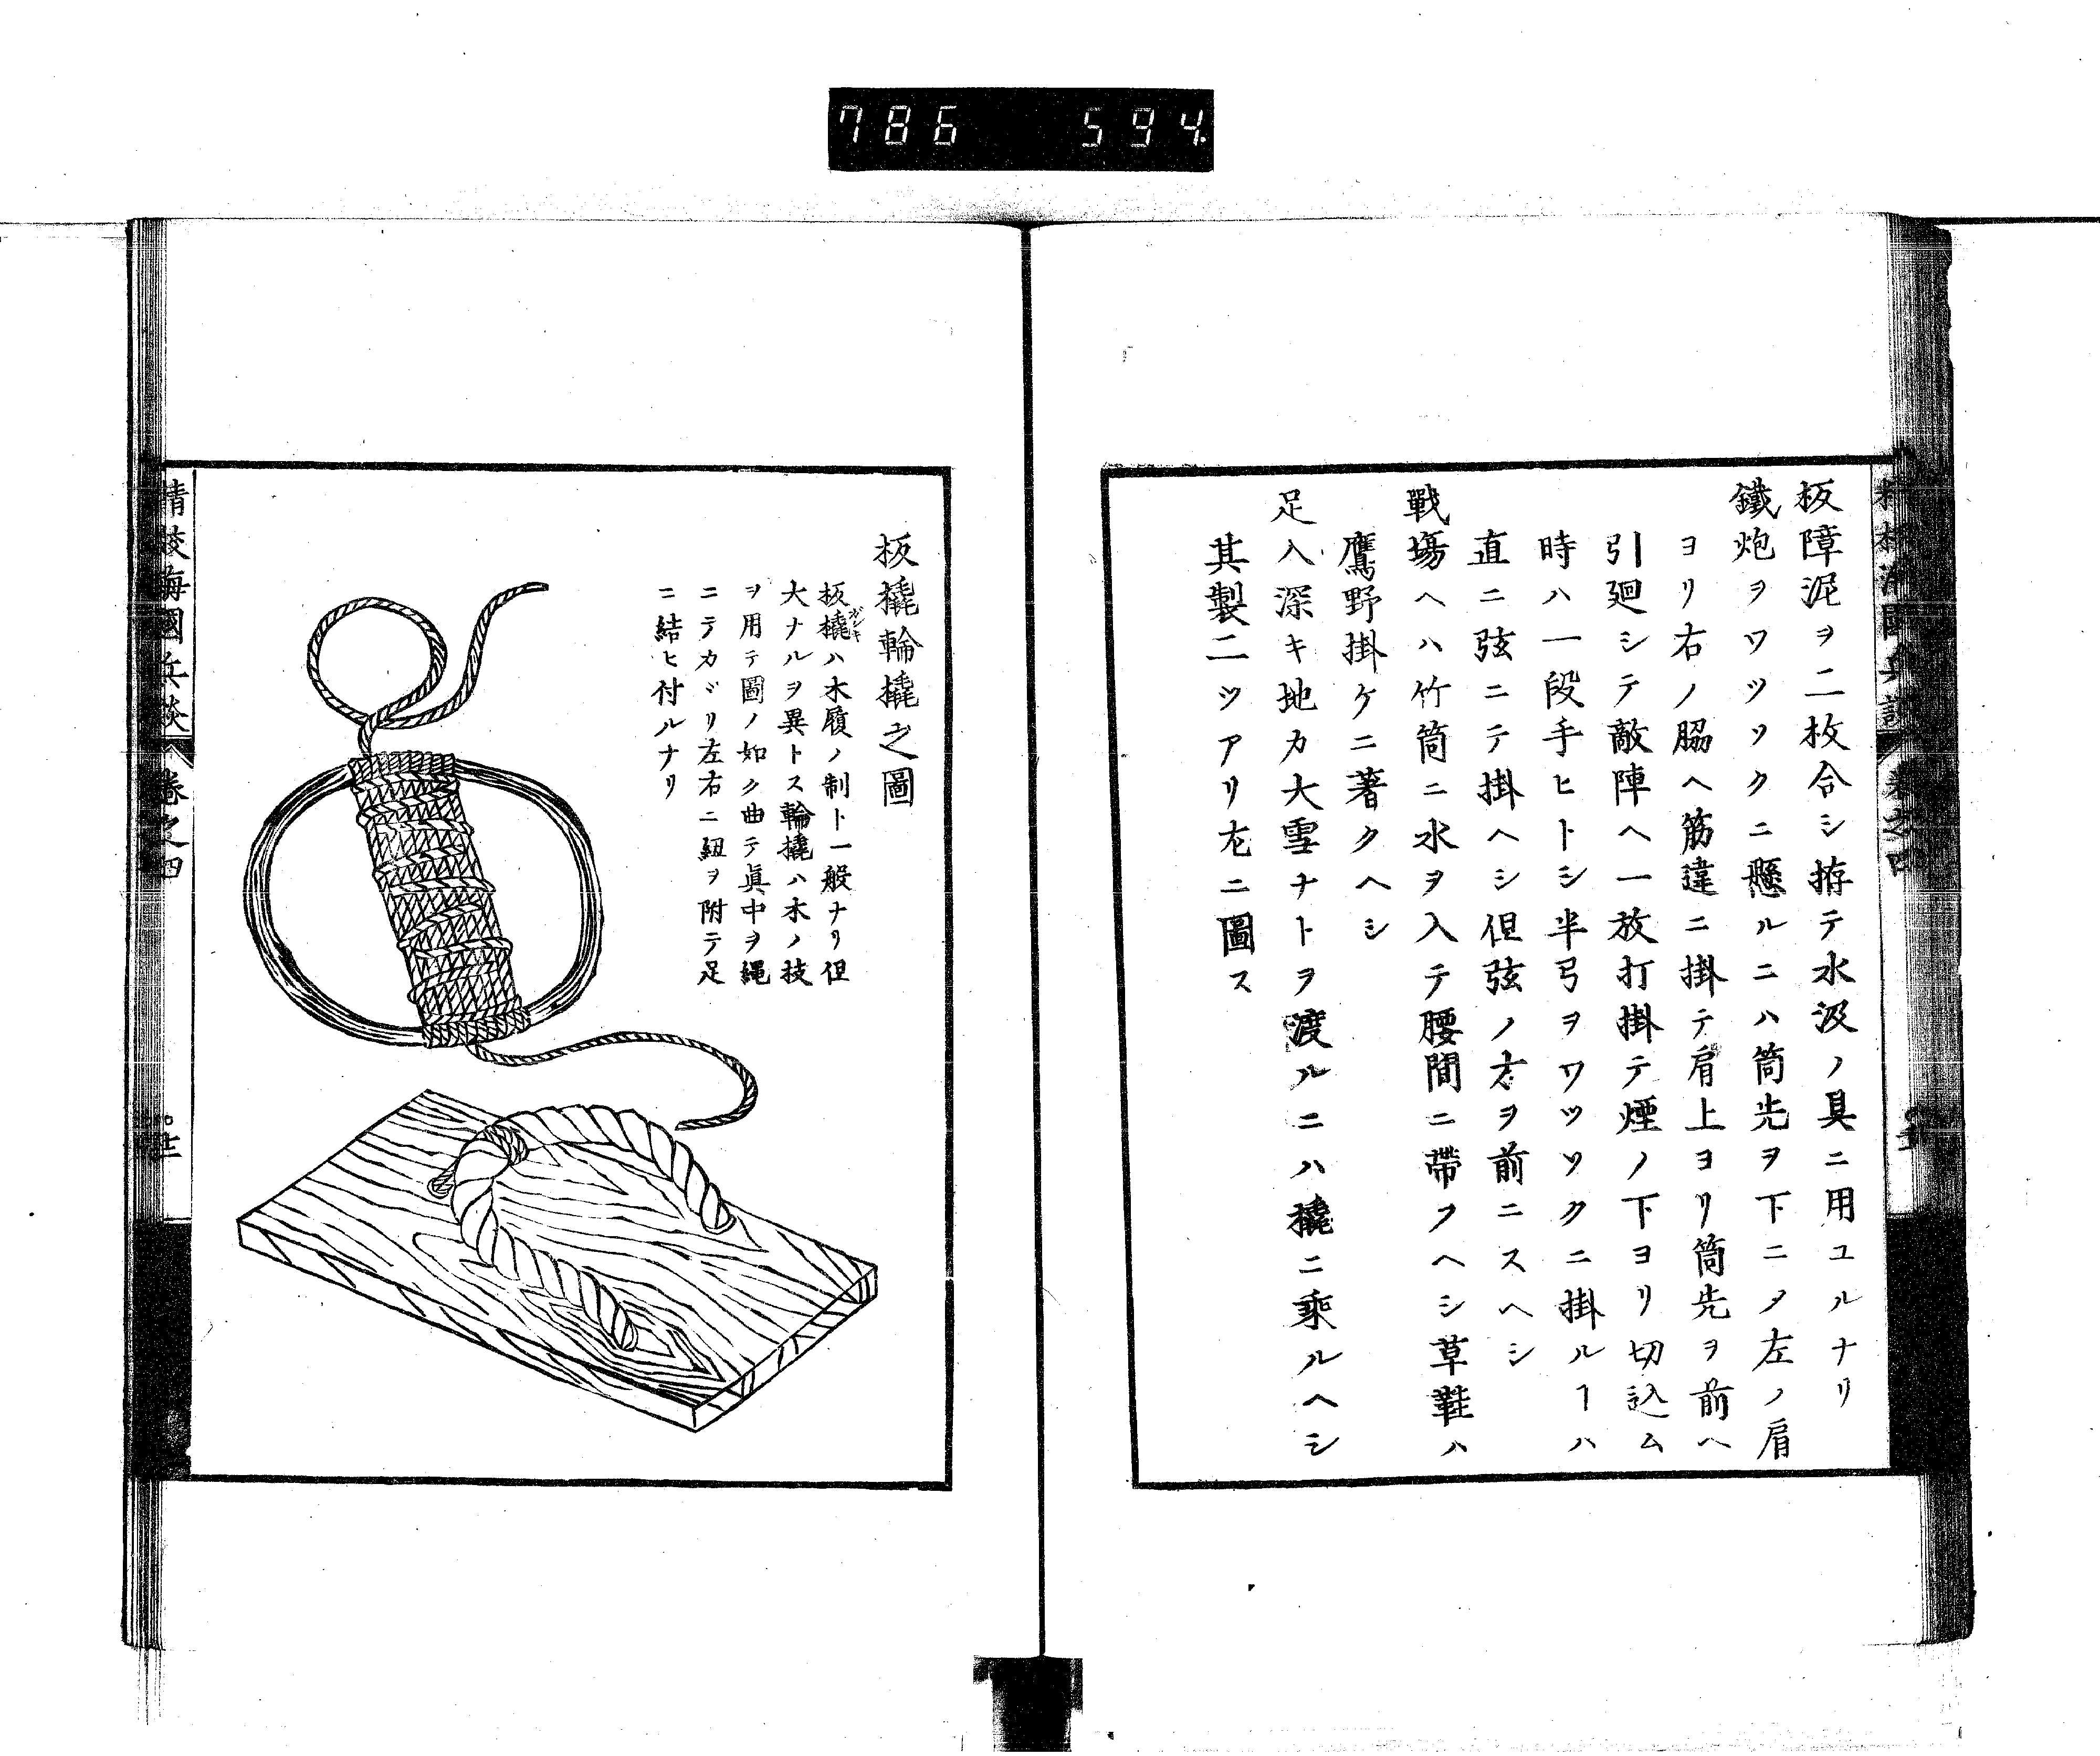 786 594
板障泥ヲ二枚合シ拵テ水汲ノ具ニ用ユルナリ
鐵炮ヲワツソクニ懸ルニハ筒先ヲ下ニタ左ノ肩
ヨリ右ノ脇ヘ筋違ニ掛テ肩上ヨリ筒先ヲ前ヘ
引廻シテ敵陣ヘ一放打掛テ煙ノ下ヨリ切込ム
時ハ一段手ヒトシ半弓ヲワツソクニ掛ルヿハ
直ニ弦ニテ掛ヘシ但弦ノ方ヲ前ニスヘシ
戰塲ヘハ竹筒ニ水ヲ入テ腰間ニ帶フヘシ草鞋ハ
鷹野掛ケニ著クヘシ
足入深キ地カ大雪ナトヲ渡ルニハ橇ニ乘ルヘシ
其製二ツアリ左ニ圖ス
板橇輪橇之圖
板橇ハ木履ノ制ト一般ナリ但
大ナルヲ異トス輪橇ハ木ノ技
ヲ用テ圖ノ如ク曲テ眞中ヲ繩
ニテカヾリ左右ニ紐ヲ附テ足
ニ結ヒ付ルナリ
精校海國兵談 卷之四